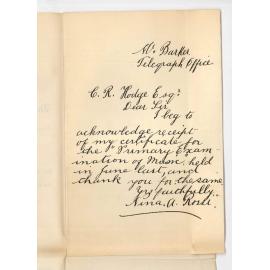 Mt Barker
Telegraph Office
C. R. Hodge Esqr
Dear Sir
I beg to
acknowledge receipt
of my certificate for
the "Primary Exam-
ination of Music" held
in June last, and
thank you for the same
Yrs faithfully
Nina. A.